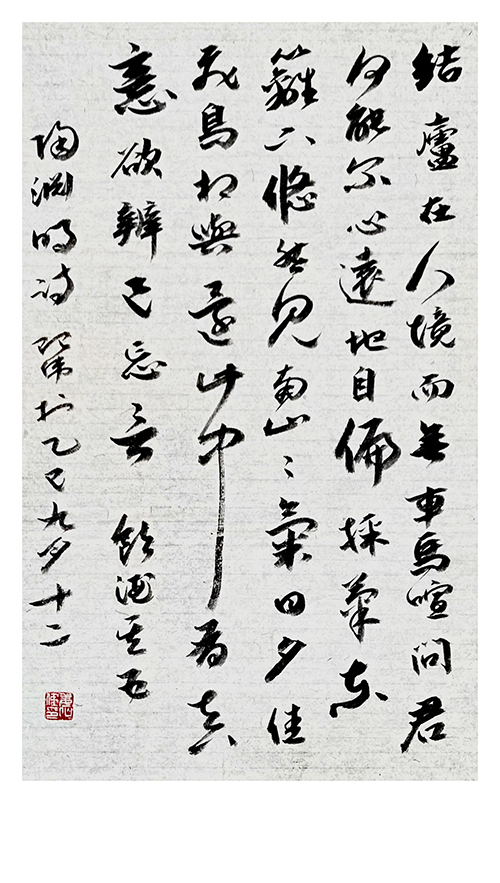 結廬在人境而無車馬喧問君
何能尔心遠地自偏採菊東
籬下悠然見南山〻氣日夕佳
飛鳥相與還此中有真
意欲辨已忘言 飲酒其五
陶渊明诗 於乙巳九月十二